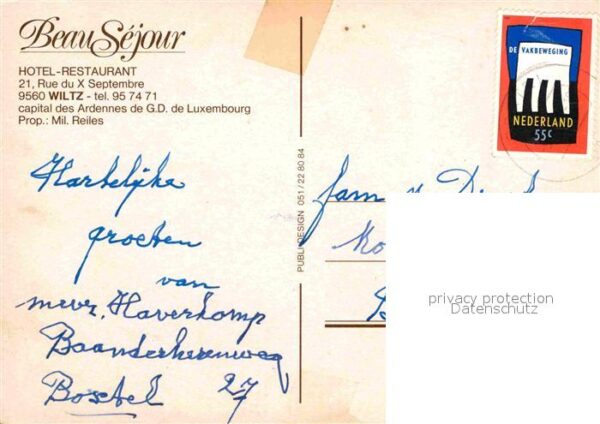 Beau Séjour
HOTEL-RESTAURANT
21, Rue du X Septembre
9560 WILTZ - tel. 95 74 71
capital des Ardennes de G.D. de Luxembourg
Prop.: Mil. Reiles
Hartelijke
groeten
van
mevr. Haverkomp
Baanderherenweg
Boxtel 27
PUBLI DESIGN 051/22 80 84
DE VAKBEWEGING
NEDERLAND
55c
fam v. D
Ko
privacy protection
Datenschutz